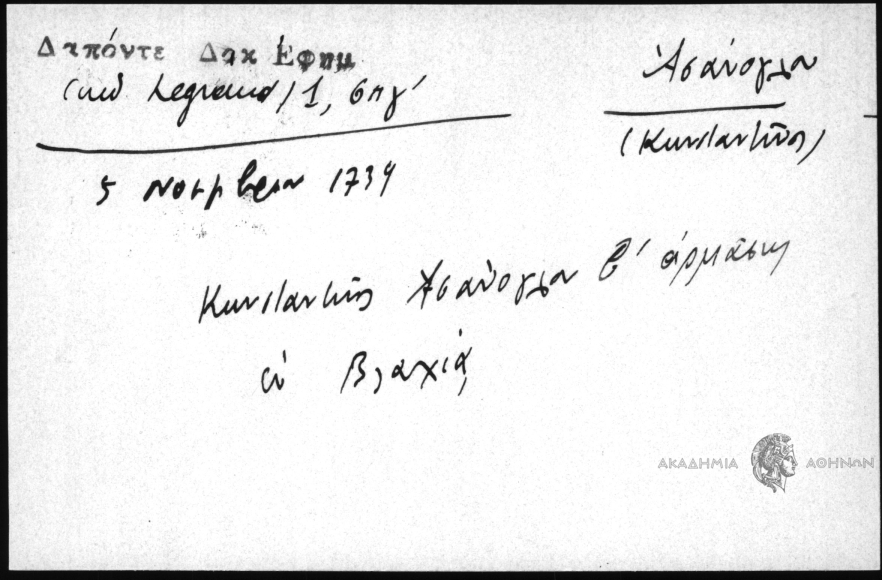 Δαπόντε Δακ Ἐφημ
(ἐκδ Legrand) 1, σπγ'
Ἀσάνογλου
(Κωνσταντῖνος)
5 Νοεμβρίου 1739
Κωνσταντῖνος Ἀσάνογλου β' ἀρμάσης
ἐν Βλαχίᾳ
ΑΚΑΔΗΜΙΑ ΑΘΗΝΩΝ